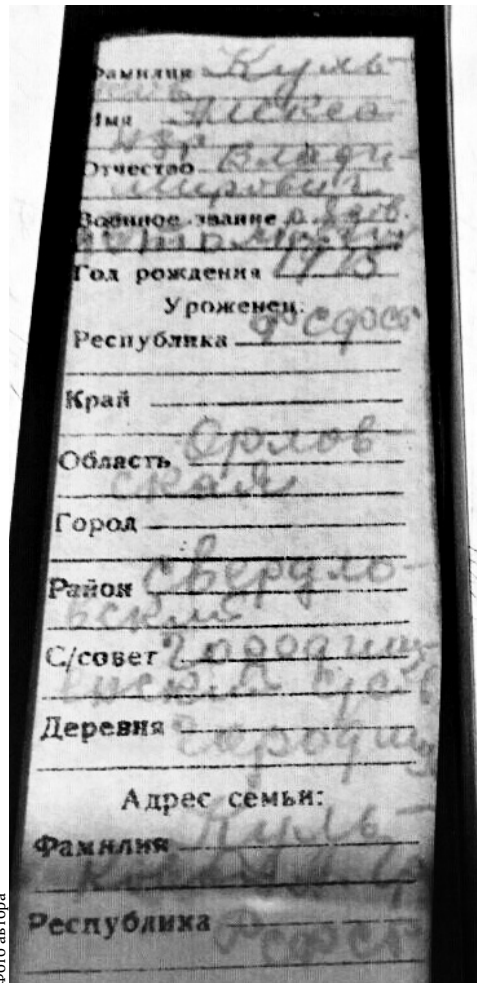 Фамилия Куль-
Имя Алекса
ндр
Отчество Влади-
мирович
Военное звание рядов.
Год рождения 1915
Уроженец:
Республика РСФСР
Край
Область Орлов-
ская
Город
Район Свердло-
вский
С/совет Городищ-
енский с/сов
Деревня Городищ
Адрес семьи:
Фамилия Куль-
Республика РСФСР
Фото автора